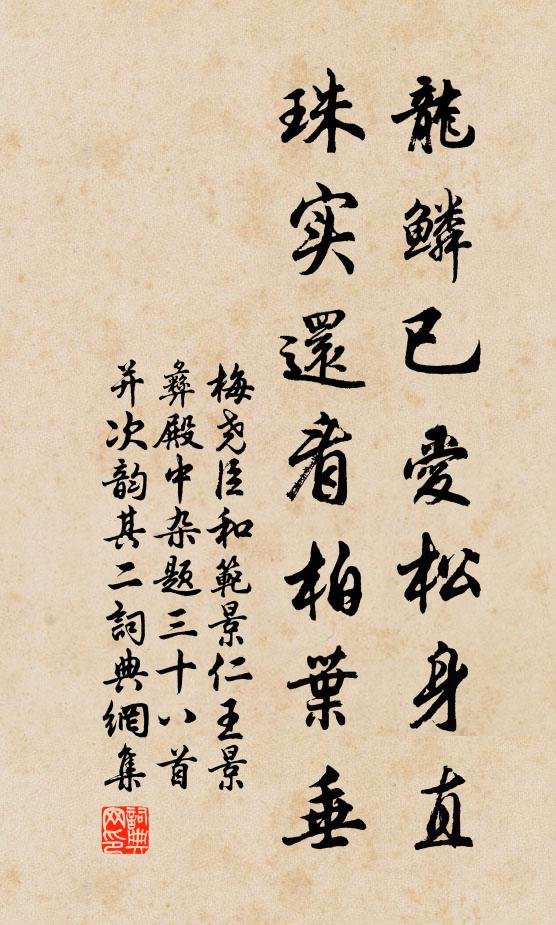 龍鱗已愛松身直
珠实還看柏葉垂
梅尧臣和範景仁王景
彝殿中杂题三十八首
并次韵其二詞典網集
詞典网印